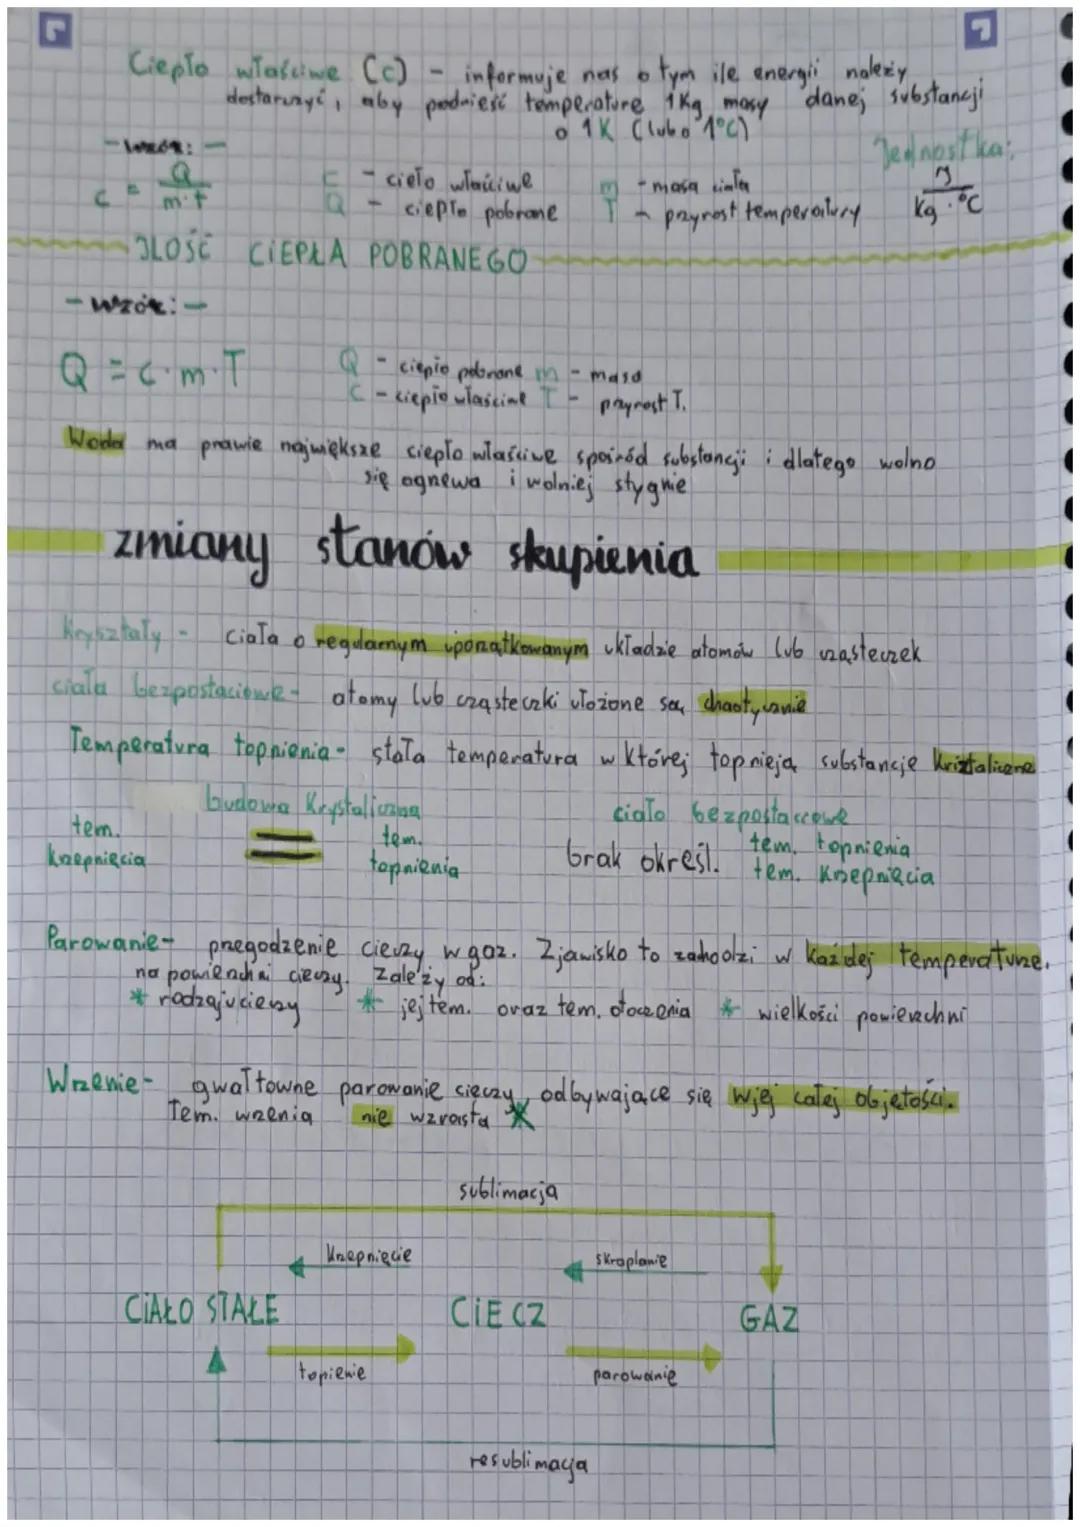 Ciepło właściwe (c) - informuje nas o tym ile energii należy
dostarczyć, aby podnieść temperature 1kg masy danej substancji
o 1K (lub o 1°C)
- wzór: -
Jednostka:
c = Q / m·t
c - cieło właściwe
m - masa ciała
J / kg·°C
Q - ciepło pobrane
T - przyrost temperatury
ILOŚĆ CIEPŁA POBRANEGO
- wzór: -
Q = c·m·T
Q - ciepło pobrane m - masa
C - ciepło właściwe T - przyrost T.
Woda ma prawie największe ciepło właściwe spośród substancji i dlatego wolno
się ogrzewa i wolniej stygnie
zmiany stanów skupienia
Kryształy - ciała o regularnym uporządkowanym układzie atomów lub cząsteczek
ciała bezpostaciowe - atomy lub cząsteczki ułożone są chaotycznie
Temperatura topnienia - stała temperatura w której topnieją substancje
budowa krystaliczna
ciało bezpostaciowe
tem. krzepnięcia = tem. topnienia
brak określ. tem. topnienia
tem. krzepnięcia
Parowanie - cieczy w gaz. Zjawisko to zahodzi w każdej temperaturze.
na powierzchni cieczy. Zależy od:
* rodzaju cieczy * jej tem. oraz tem. otoczenia * wielkości powierzchni
Wrzenie - gwałtowne parowanie cieczy, odbywające się w jej całej objętości.
Tem. wrzenia nie wzrasta *
sublimacja
krzepnięcie
skraplanie
CIAŁO STAŁE
CIECZ
GAZ
topienie
parowanie
resublimacja